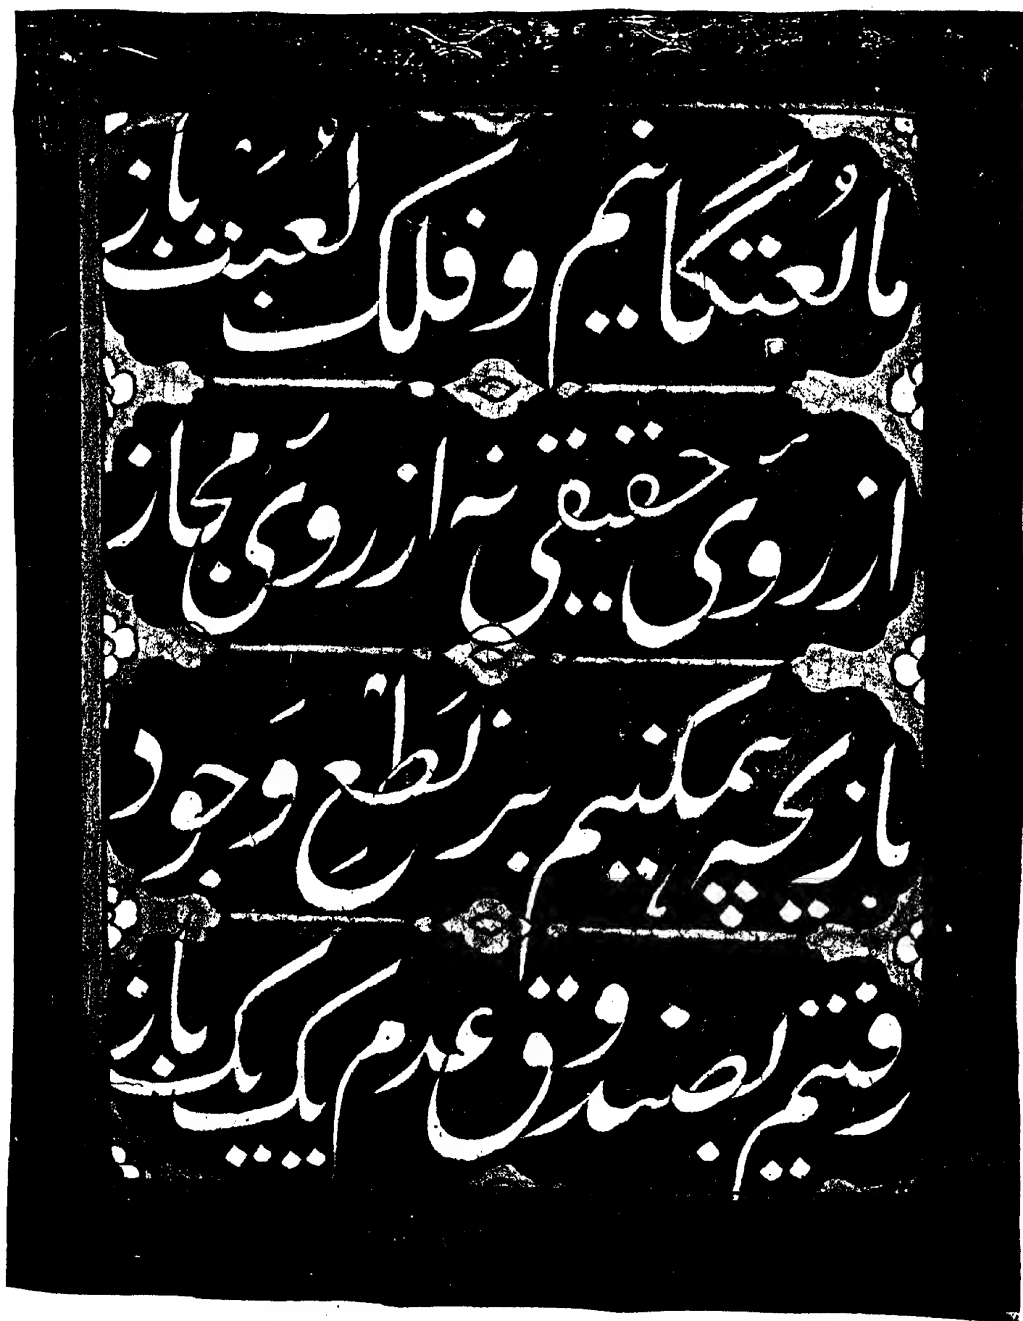 ما لُعبتگانیم و فلک لُعبَت باز
از رُوی حقیقی نه از رُوی مجاز
بازیچه همیکنیم بر نَطْعِ وَجود
رفتیم بصندوق عدم یک یک باز